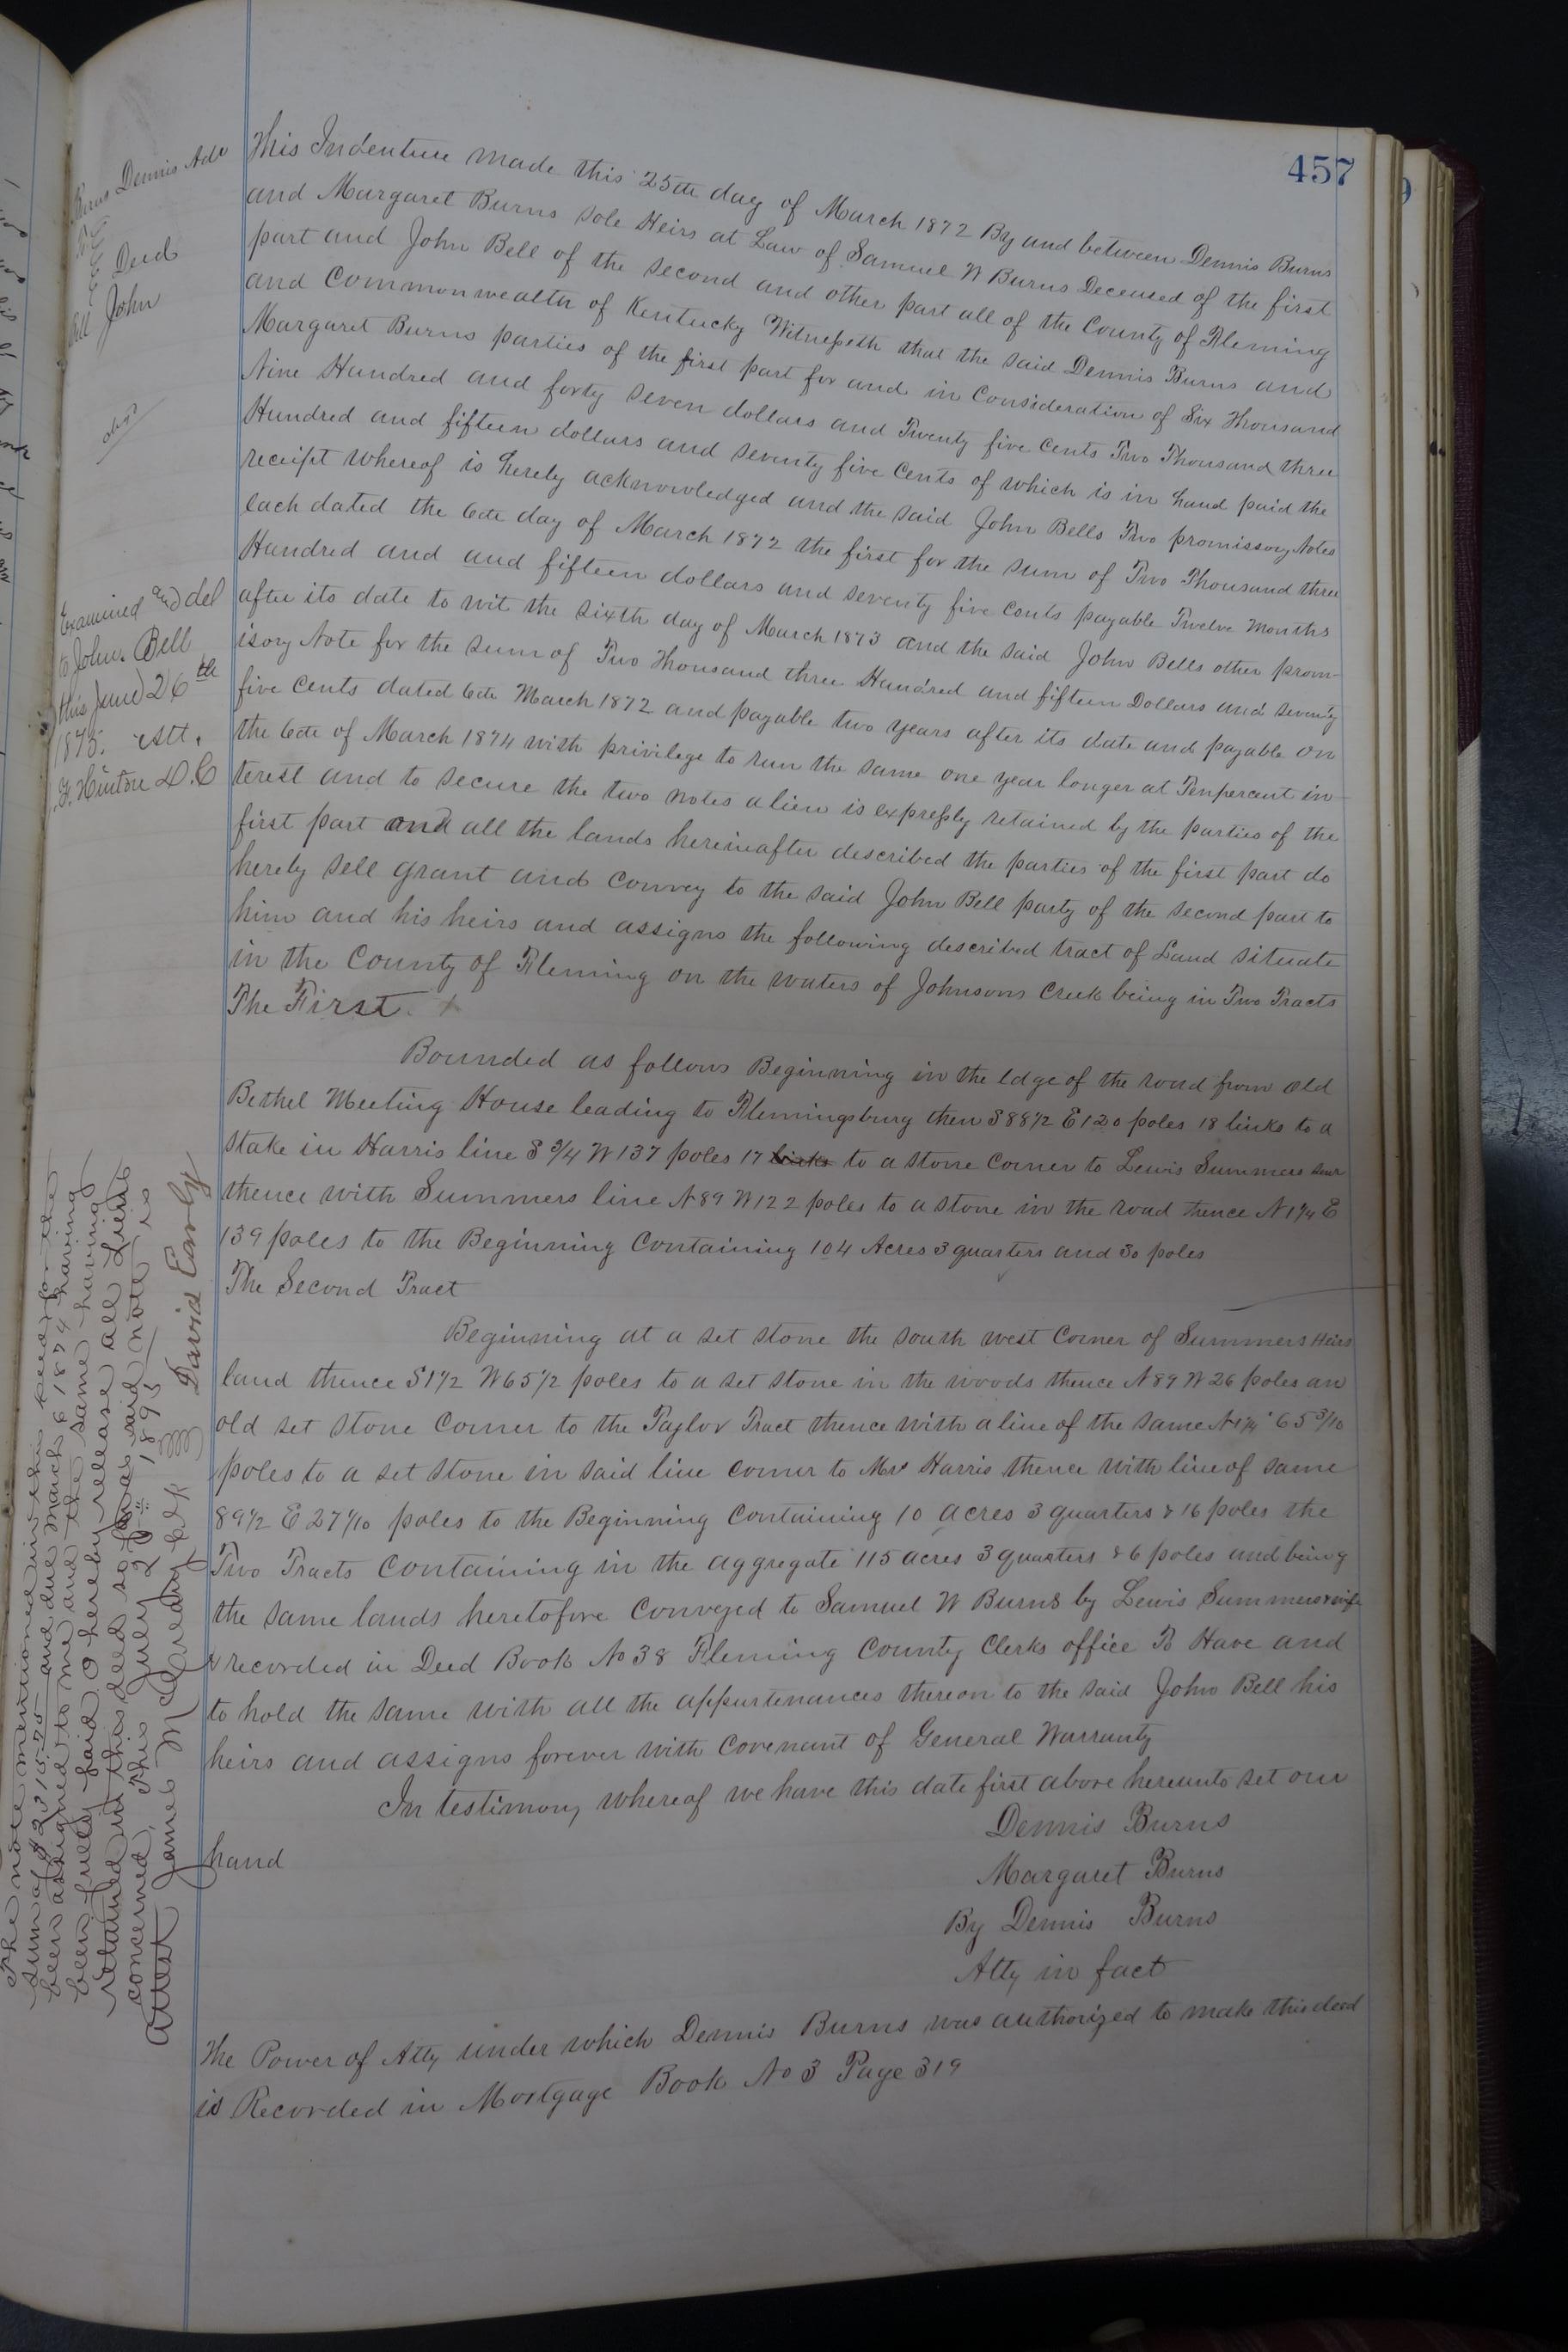 457
Burns Dennis Adr
To
Deed
Bell John
This Indenture made this 25th day of March 1872 By and between Dennis Burns
and Margaret Burns sole Heirs at Law of Samuel W Burns Deceased of the first
part and John Bell of the second and other part all of the County of Fleming
and Commonwealth of Kentucky Witnesseth that the said Dennis Burns and
Margaret Burns parties of the first part for and in Consideration of Six Thousand
Nine Hundred and forty seven dollars and Twenty five Cents Two Thousand three
Hundred and fifteen dollars and seventy five Cents of which is in hand paid the
receipt whereof is hereby acknowledged and the said John Bells Two promissory Notes
each dated the 6th day of March 1872 the first for the sum of Two Thousand three
Hundred and and fifteen dollars and seventy five Cents payable Twelve Months
after its date to wit the sixth day of March 1873 and the said John Bells other prom-
isory Note for the sum of Two Thousand three Hundred and fifteen Dollars and seventy
five Cents dated 6th March 1872 and payable two years after its date and payable on
the 6th of March 1874 with privilege to run the same one year longer at Ten percent in-
terest and to secure the two notes a lien is expressly retained by the parties of the
first part and all the lands hereinafter described the parties of the first part do
hereby sell grant and convey to the said John Bell party of the second part to
him and his heirs and assigns the following described tract of Land situate
in the County of Fleming on the waters of Johnsons Creek being in Two Tracts
The First.
Bounded as follows Beginning in the Edge of the road from old
Bethel Meeting House leading to Flemingsburg then S 88 1/2 E 120 poles 18 links to a
stake in Harris line S 3/4 W 137 poles 17 links to a stone corner to Lewis Summers
thence with Summers line N 89 W 122 poles to a stone in the road thence N 1 1/4 E
139 poles to the Beginning Containing 104 Acres 3 quarters and 30 poles
The Second Tract
Beginning at a set stone the south west Corner of Summers Heirs
land thence S 1 1/2 W 65 1/2 poles to a set stone in the woods thence N 89 W 26 poles an
old set stone Corner to the Taylor Tract thence with a line of the same N 1 1/4 65 3/10
poles to a set stone in said line corner to Mr Harris thence with line of same
89 1/2 E 27 1/10 poles to the Beginning Containing 10 acres 3 quarters & 16 poles the
Two Tracts Containing in the aggregate 115 acres 3 quarters & 6 poles and being
the same lands heretofore Conveyed to Samuel W Burns by Lewis Summers & wife
& recorded in Deed Book No 38 Fleming County Clerks office To Have and
to hold the same with all the appurtenances thereon to the said John Bell his
heirs and assigns forever with Covenant of General Warranty
In testimony whereof we have this date first above hereunto set our
hand
Dennis Burns
Margaret Burns
By Dennis Burns
Atty in fact
The Power of Atty under which Dennis Burns was authorized to make this deed
is Recorded in Mortgage Book No 3 Page 319
Examined and del
to John. Bell
this June 26th
1875. Att.
Hinton D.C
The note mentioned in this deed for the
sum of $2315.75 and due March 6 1874 having
been assigned to me and the same having
been fully paid I hereby release all Liens
retained in this deed so far as said note is
concerned, This July 20th 1895
David Early
Attest James McCreary Clk